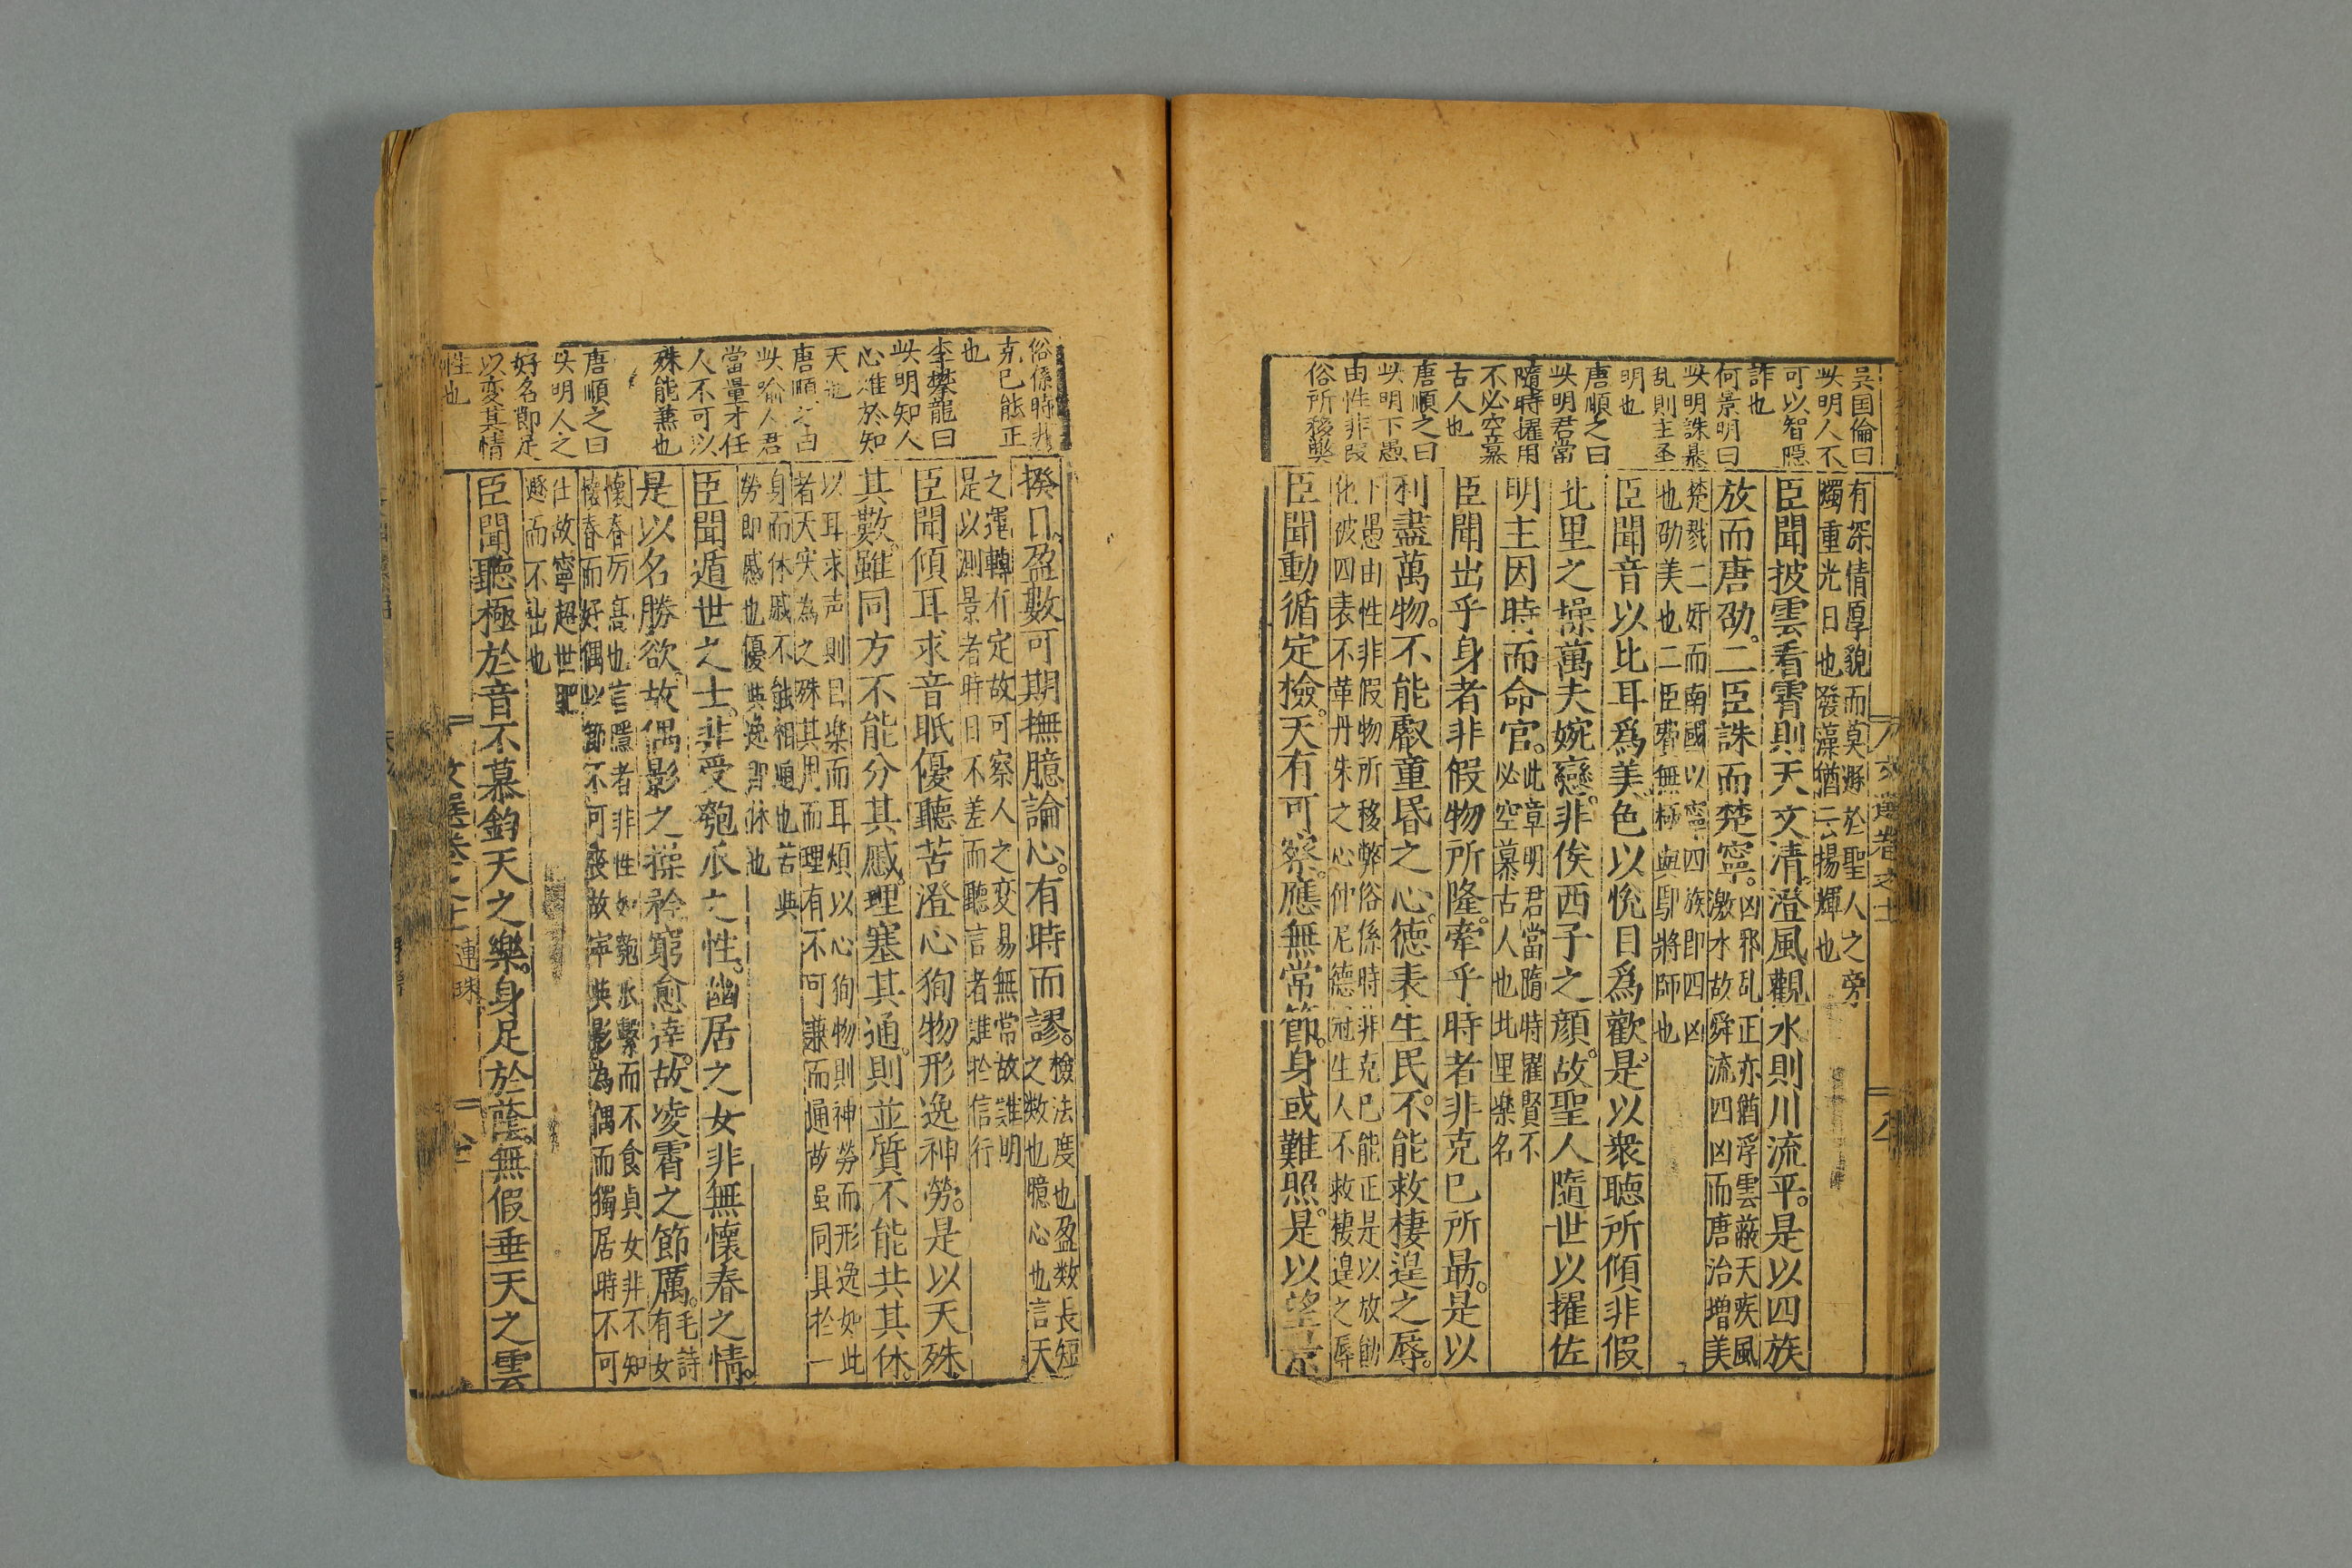 吳囯倫曰
此明人不
可以智隱
詐也
何景明曰
此明誅暴
乱則主丕
明也
唐順之曰
此明君當
隨時擢用
不必空慕
古人也
唐順之曰
此明下愚
由性非叚
俗所移弊
有深情厚貌而莫逃於聖人之旁
燭重光日也發藻猶云揚輝也
臣聞披雲看霄則天文清。澄風觀水則川流平。是以四族
放而唐劭。二臣誅而楚寧。
凶邪乱正亦猶浮雲蔽天疾風
激水故舜流四凶而唐治增美
楚戮二奸而南國以寧四族即四凶
也劭美也二臣費無極與鄢將師也
臣聞音以比耳爲美色以悅目爲歡。是以衆聽所傾非假
北里之操萬夫婉孌。非俟西子之顔。故聖人隨世以擢佐
明主因時而命官。
此章明君當隨時擢賢不
必空慕古人也北里樂名
臣聞出乎身者非假物所隆。牽乎時者非克巳所勗。是以
利盡萬物。不能叡童昏之心。德表生民。不能救棲遑之辱。
下愚由性非假物所移弊俗係時非克巳能正是以放勛
化被四表不革丹朱之心仲尼德冠生人不救棲遑之辱
臣聞動循定檢。天有可察。應無常節。身或難照。是以望景
文選卷之十
八
俗係時非
克巳能正
也
李攀龍曰
此明知人
心难於知
天也
唐順之曰
此喻人君
當量才任
人不可以
殊能兼也
唐順之曰
此明人之
好名節足
以变其情
性也
揆日。盈數可期撫臆論心。有時而謬。
檢法度也盈数長短
之数也臆心也言天
之運轉有定故可察人之变易無常故難明
是以測景者時日不差而聽言者难於信行
臣聞傾耳求音眂優聽苦澄心狥物形逸神勞。是以天殊
其數。雖同方不能分其慼。理塞其通。則並質不能共其休。
以耳求声則目楽而耳煩以心狥物則神勞而形逸如此
者天実為之殊其用而理有不可謙而通故虽同具於一
身而休戚不能相通也苦與
勞即慼也優與逸即休也
臣聞遁世之士。非受匏瓜之性。幽居之女非無懷春之情。
是以名勝欲。故偶影之操矜窮愈達。故凌霄之節厲。
毛詩
有女
懷春厉高也言隱者非性如匏瓜繫而不食貞女非不知
懷春而好偶以節不可喪故寧與影為偶而獨居時不可
仕故寧超世
遯而不出也
臣聞聽極於音不慕鈞天之樂。身足於蔭。無假垂天之雲
文選卷之十
連珠